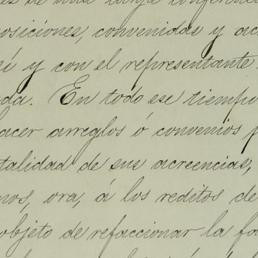 es de una larga conferencia
posiciones, convenidas y ac
sí y con el representante.
da. En todo ese tiempo
acer arreglos ó convenios p
talidad de sus acreencias,
nos, ora, á los reditos de
objeto de refaccionar la fa